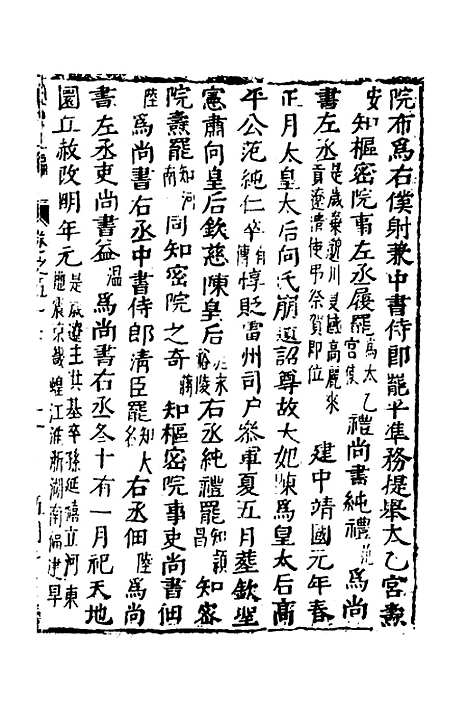 院布爲右僕射兼中書侍郎罷平準務提舉太乙宮燾
安知樞密院事左丞履罷爲太乙宮使禮尚書純禮范爲尚
書左丞是歲棄邈川夏國高麗來貢遼遣使弔祭賀即位建中靖國元年春
正月太皇太后向氏崩遺詔尊故太妃陳爲皇太后高
平公范純仁卒有傳惇貶雷州司户參軍夏五月葬欽聖
憲肅向皇后欽慈陳皇后裕陵右丞純禮罷知潁昌知密
院燾罷知河南同知密院之奇蔣知樞密院事吏尚書佃
陸爲尚書右丞中書侍郎清臣罷知大名右丞佃陸爲尚
書左丞吏尚書益溫爲尚書右丞冬十有一月祀天地
圜丘赦改明年元是歲遼主洪基卒孫延禧立河東地震京畿蝗江淮浙湖南福建旱